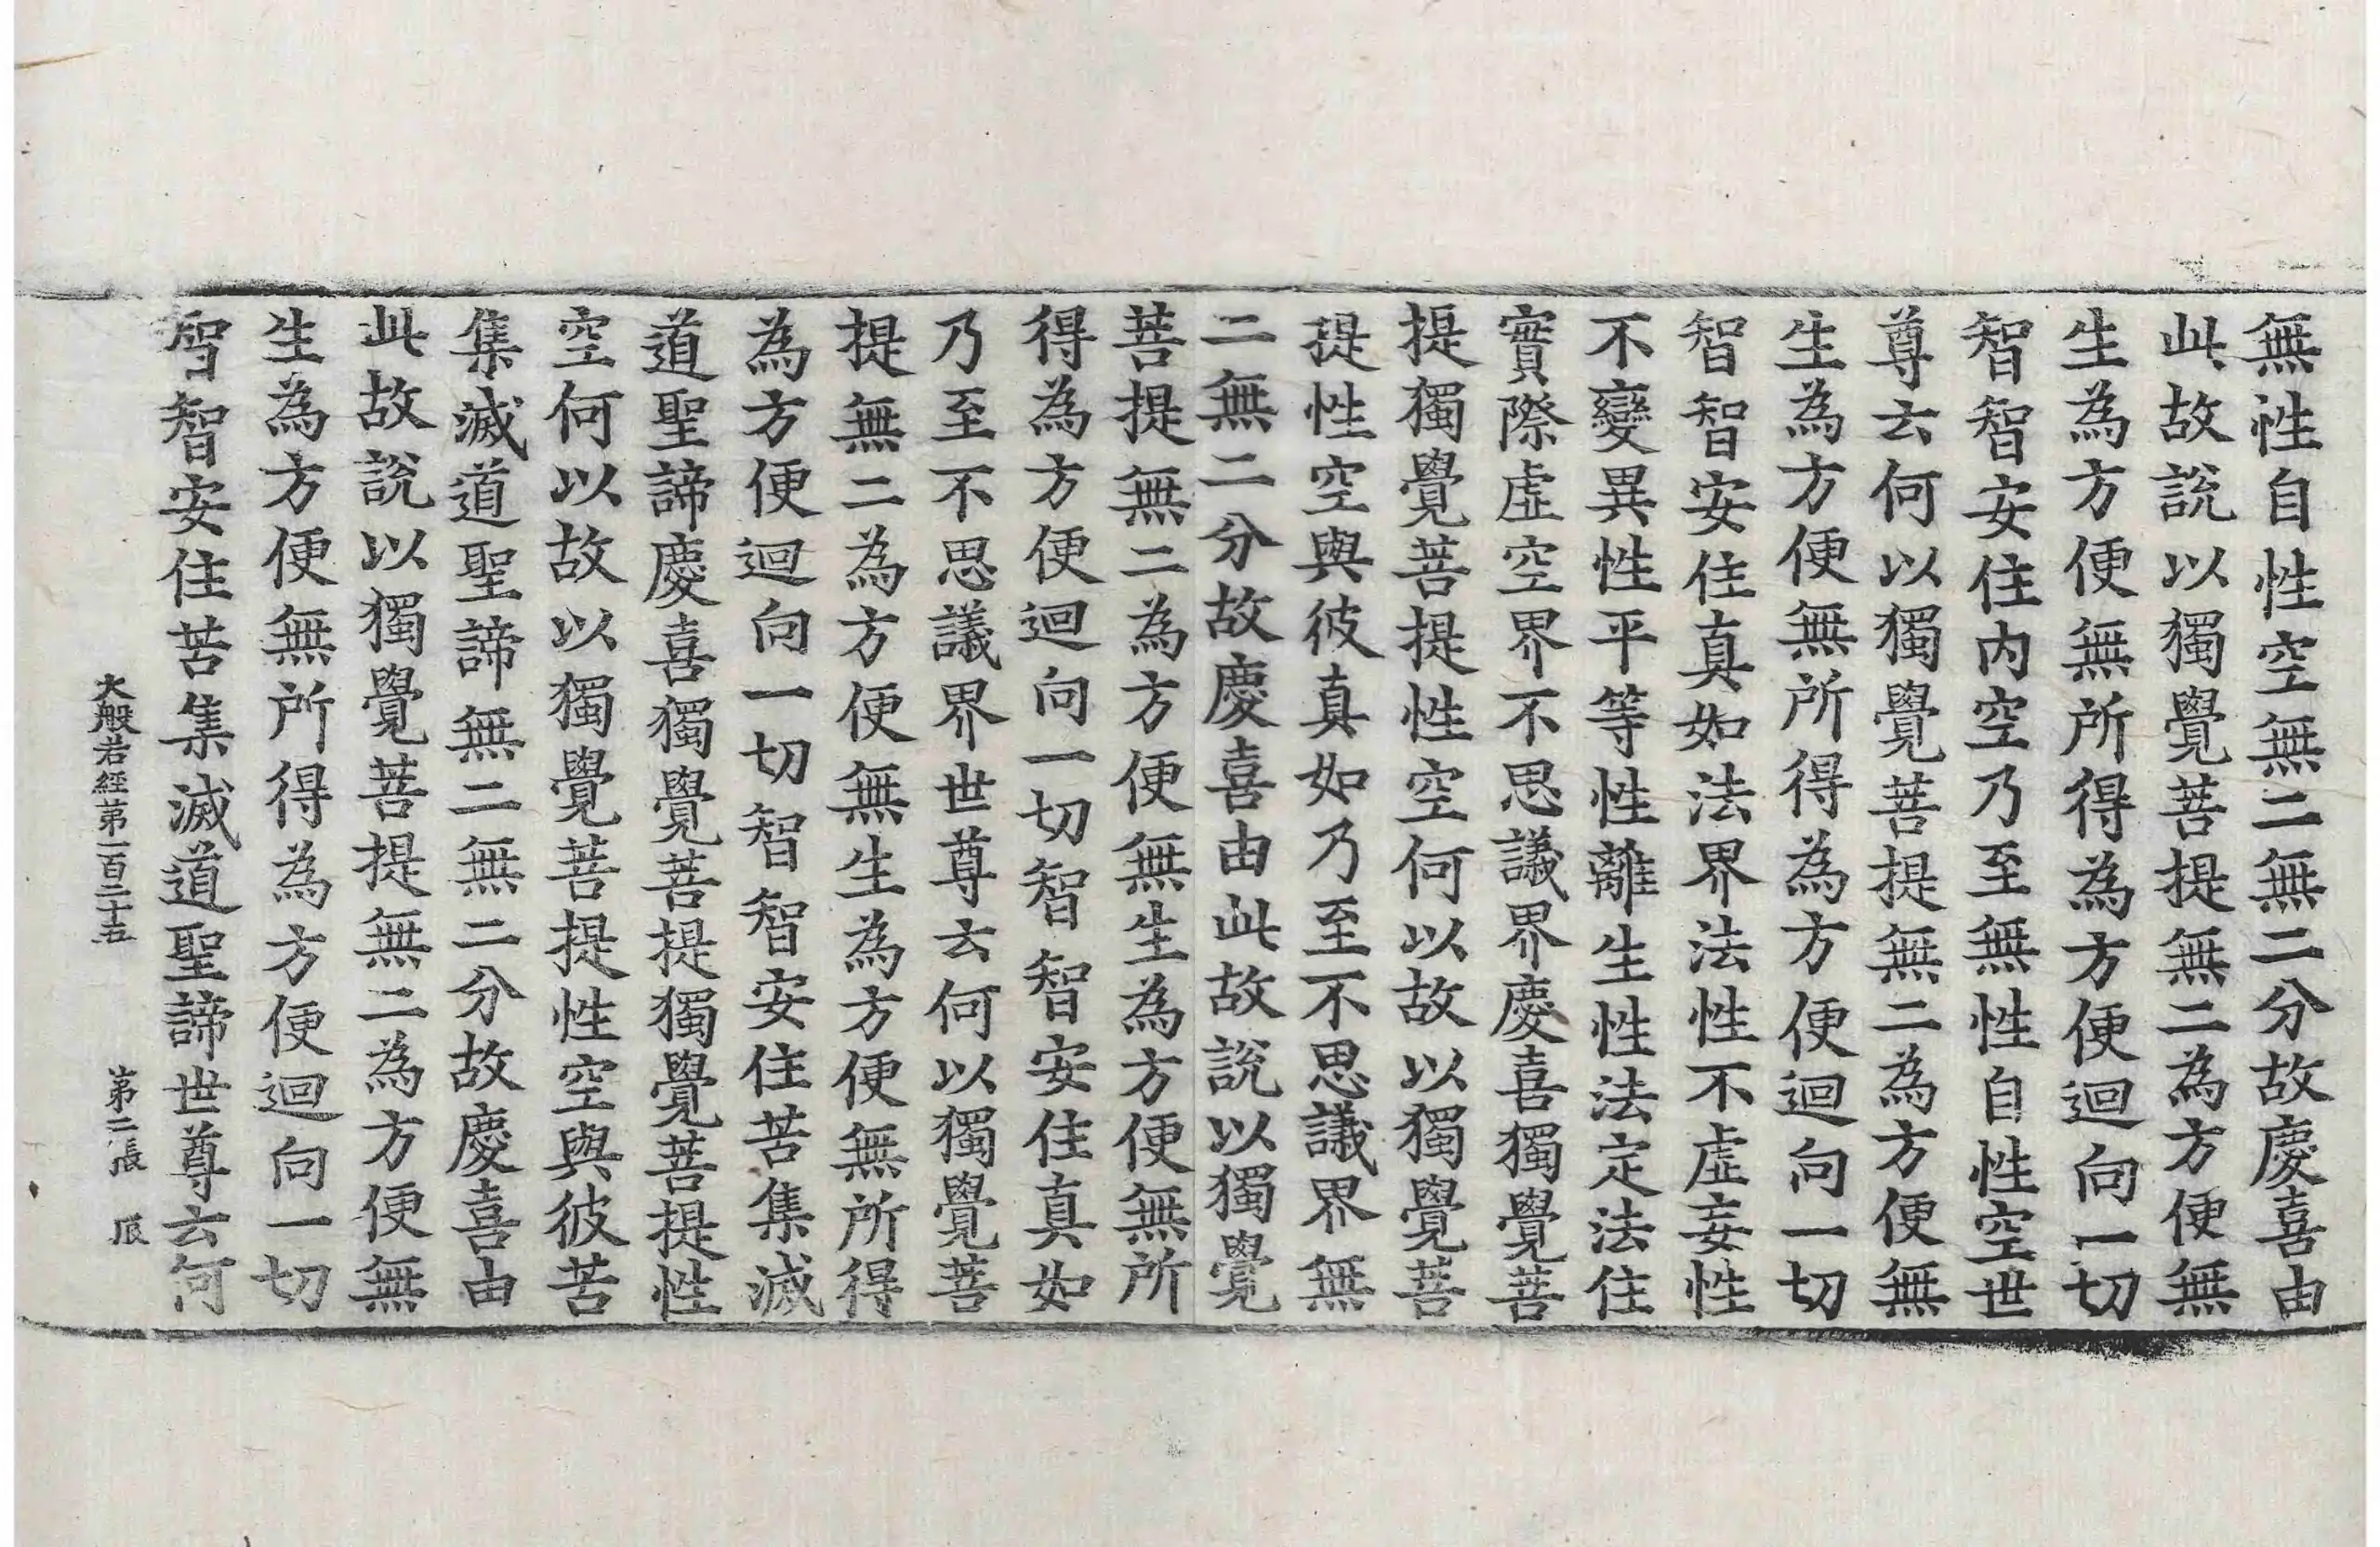 無性自性空無二無二分故慶喜由
此故說以獨覺菩提無二為方便無
生為方便無所得為方便迴向一切
智智安住內空乃至無性自性空世
尊云何以獨覺菩提無二為方便無
生為方便無所得為方便迴向一切
智智安住真如法界法性不虛妄性
不變異性平等性離生性法定法住
實際虛空界不思議界慶喜獨覺菩
提獨覺菩提性空何以故以獨覺菩
提性空與彼真如乃至不思議界無
二無二分故慶喜由此故說以獨覺
菩提無二為方便無生為方便無所
得為方便迴向一切智智安住真如
乃至不思議界世尊云何以獨覺菩
提無二為方便無生為方便無所得
為方便迴向一切智智安住苦集滅
道聖諦慶喜獨覺菩提獨覺菩提性
空何以故以獨覺菩提性空與彼苦
集滅道聖諦無二無二分故慶喜由
此故說以獨覺菩提無二為方便無
生為方便無所得為方便迴向一切
智智安住苦集滅道聖諦世尊云何
大般若經第一百二十五 第二張